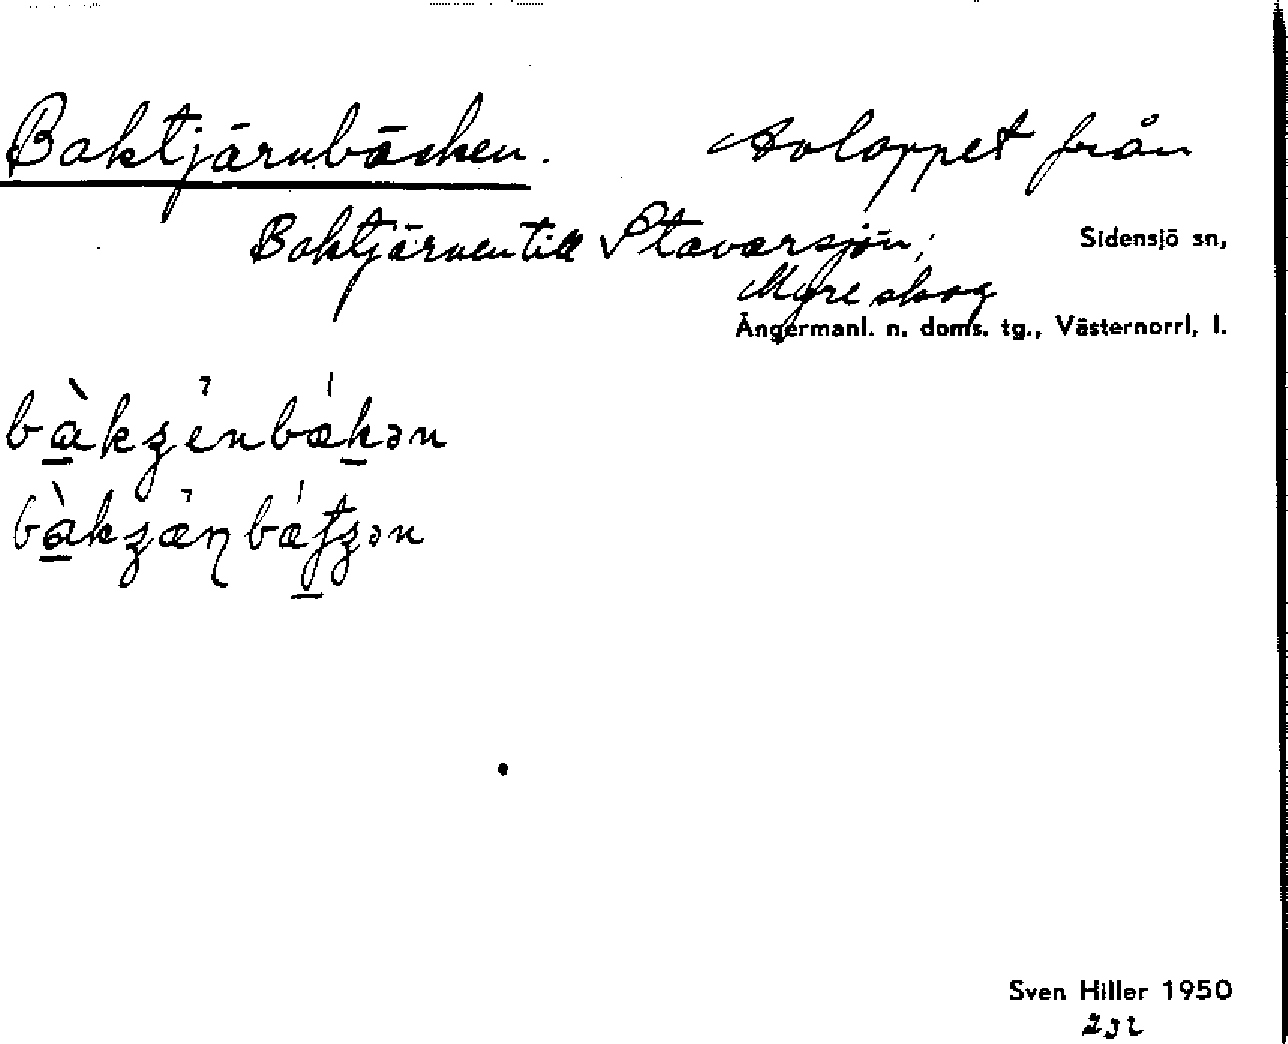 Baktjärnbäcken. Avloppet från
Baktjärnen till Stavarsjön;
Sidensjö sn,
Myre skog
Ångermanl. n. doms. tg., Västernorrl. l.
Sven Hiller 1950
232